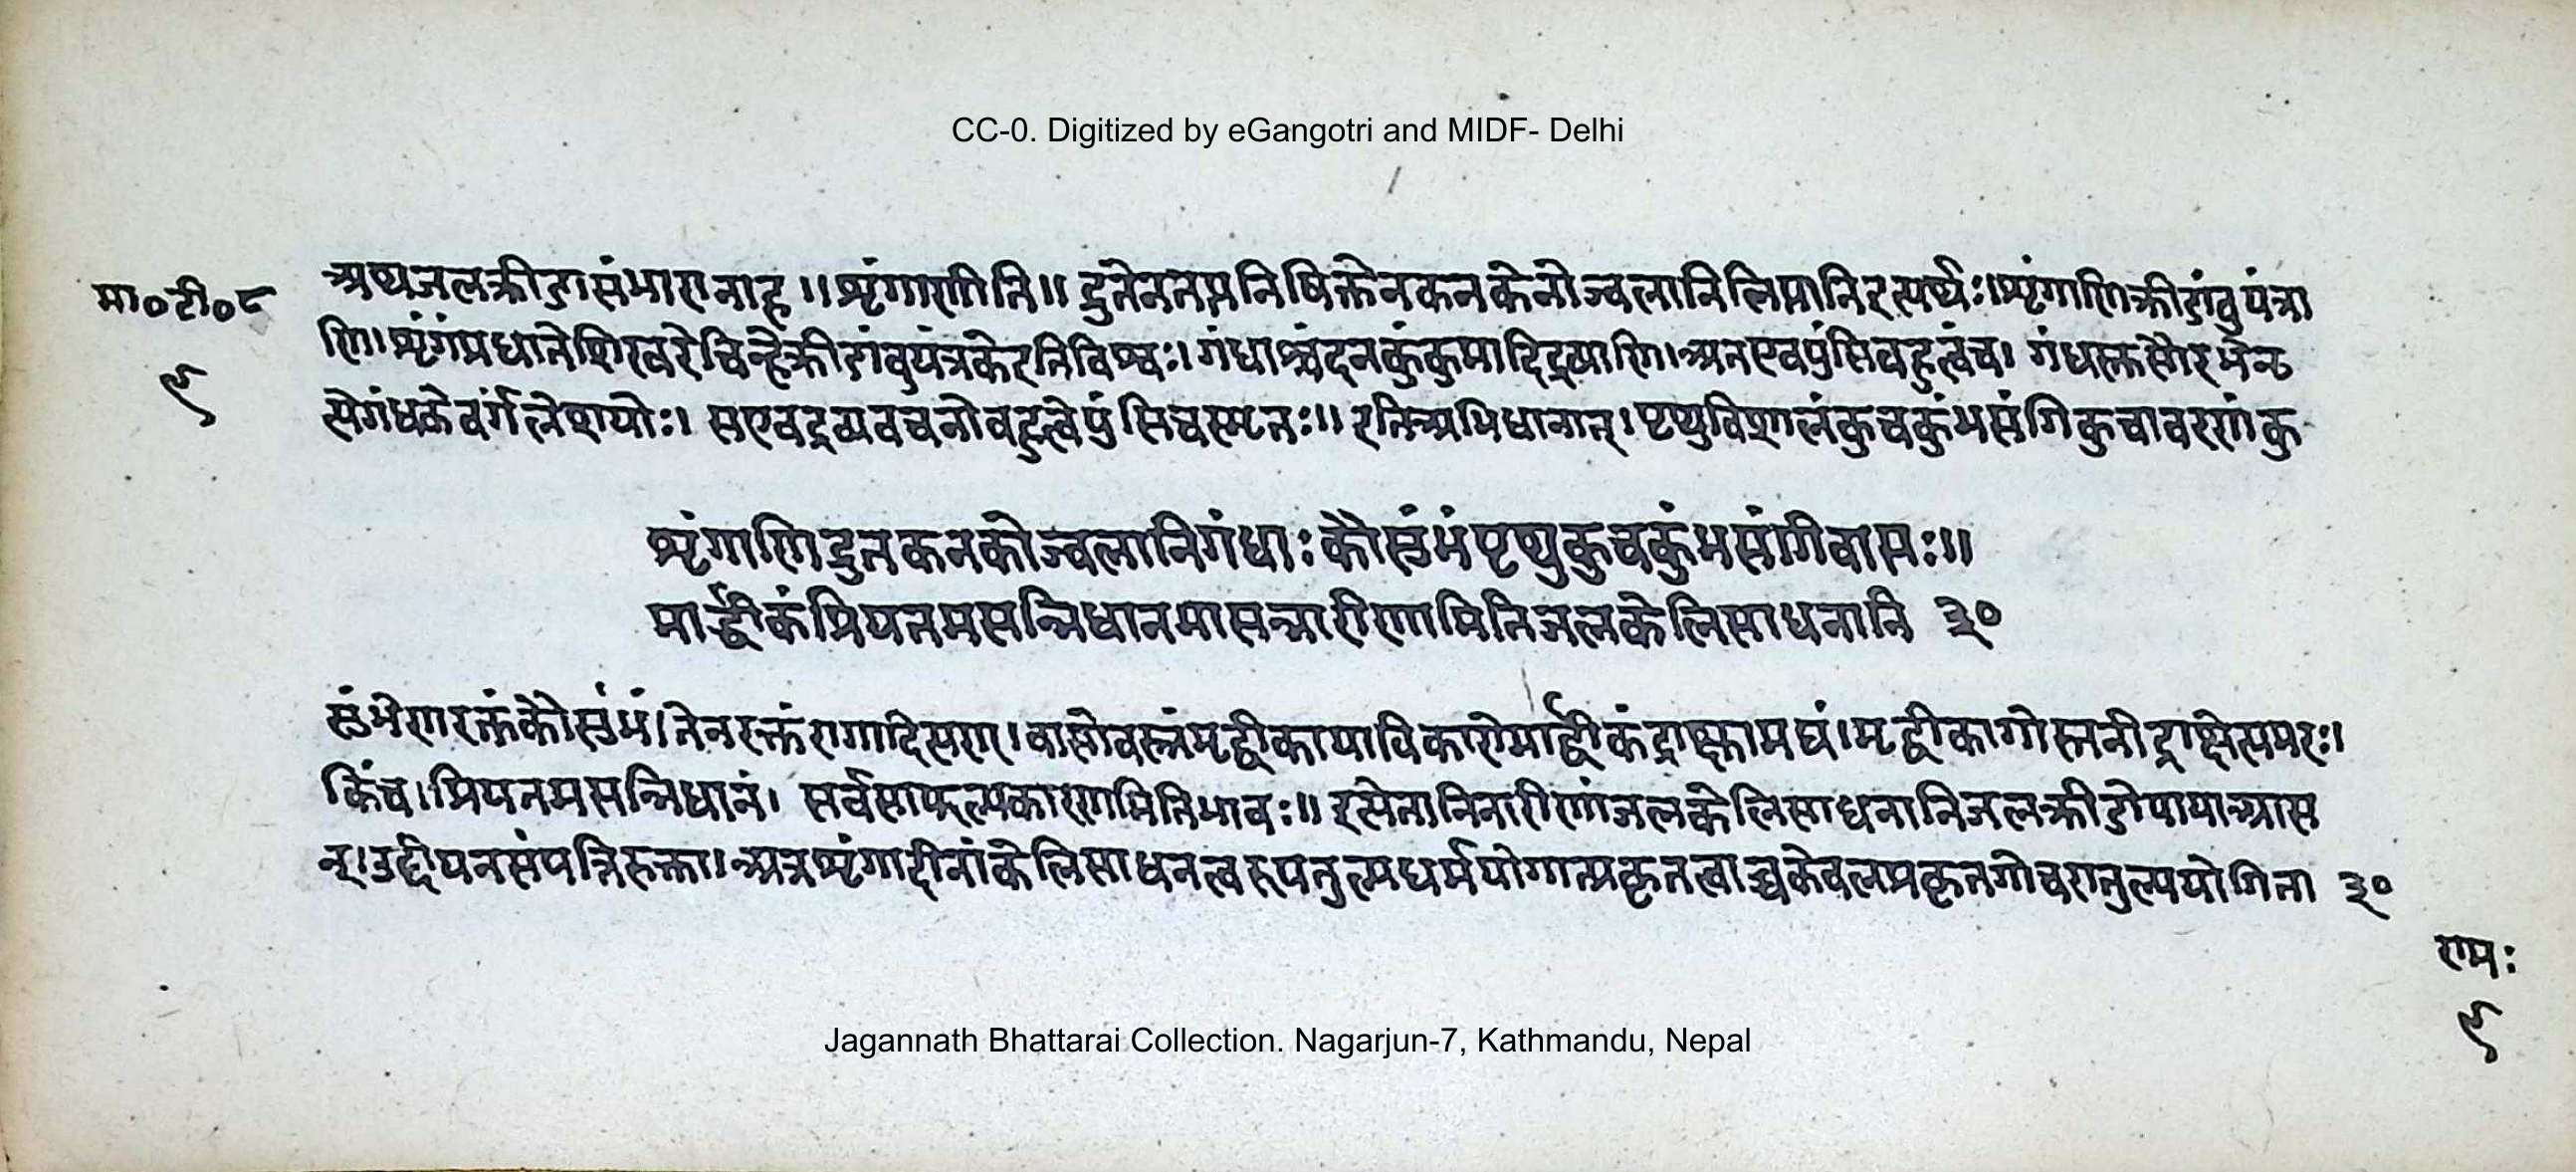 CC-0. Digitized by eGangotri and MIDF- Delhi
मा०टी०८
अथजलक्रीडासंभारानाह॥शृंगाणीति॥द्रुतेनतप्तनिषिक्तेनकनकेनोज्वलानिलिप्तानिइत्यर्थः।शृंगाणिक्रीडांबुयंत्रा
णि।शृंगंप्रधानेशिखरेचिन्हेक्रीडांबुयंत्रकेइतिविश्वः।गंधाश्चंदनकुंकुमादिद्रव्याणि।अतएवपुंसिबहुत्वंच।गंधस्तुसौरभेनृ
९
त्येगंधकेवर्गलेशयोः।सएवद्रव्यवचनोबहुत्वेपुंसिचस्मृतः॥इतिअभिधानात्।पृथुविशालंकुचकुंभसंगिकुचावरणंकु
शृंगाणिद्रुतकनकोज्वलानिगंधाःकौसुंभंपृथुकुचकुंभसंगिवासः॥
मार्द्वीकंप्रियतमसन्निधानमासन्नारीणामितिजलकेलिसाधनानि ३०
सुंभेणरक्तंकौसुंभं।तेनरक्तंरागादित्यण्।वासोवस्त्रंमृद्वीकायाविकारोमार्द्वीकंद्राक्षामद्यं।मृद्वीकागोस्तनीद्राक्षेत्यमरः।
किंच।प्रियतमसन्निधानं।सर्वसाफल्यकारणमितिभावः॥इत्येतानिनारीणांजलकेलिसाधनानिजलक्रीडोपायाआस
न्।उद्दीपनसंपत्तिरुक्ता।अत्रशृंगादीनांकेलिसाधनत्वरूपतुल्यधर्मयोगात्प्रकृतत्वाच्चकेवलप्रकृतगोचरातुल्ययोगिता ३०
रामः
९
Jagannath Bhattarai Collection. Nagarjun-7, Kathmandu, Nepal